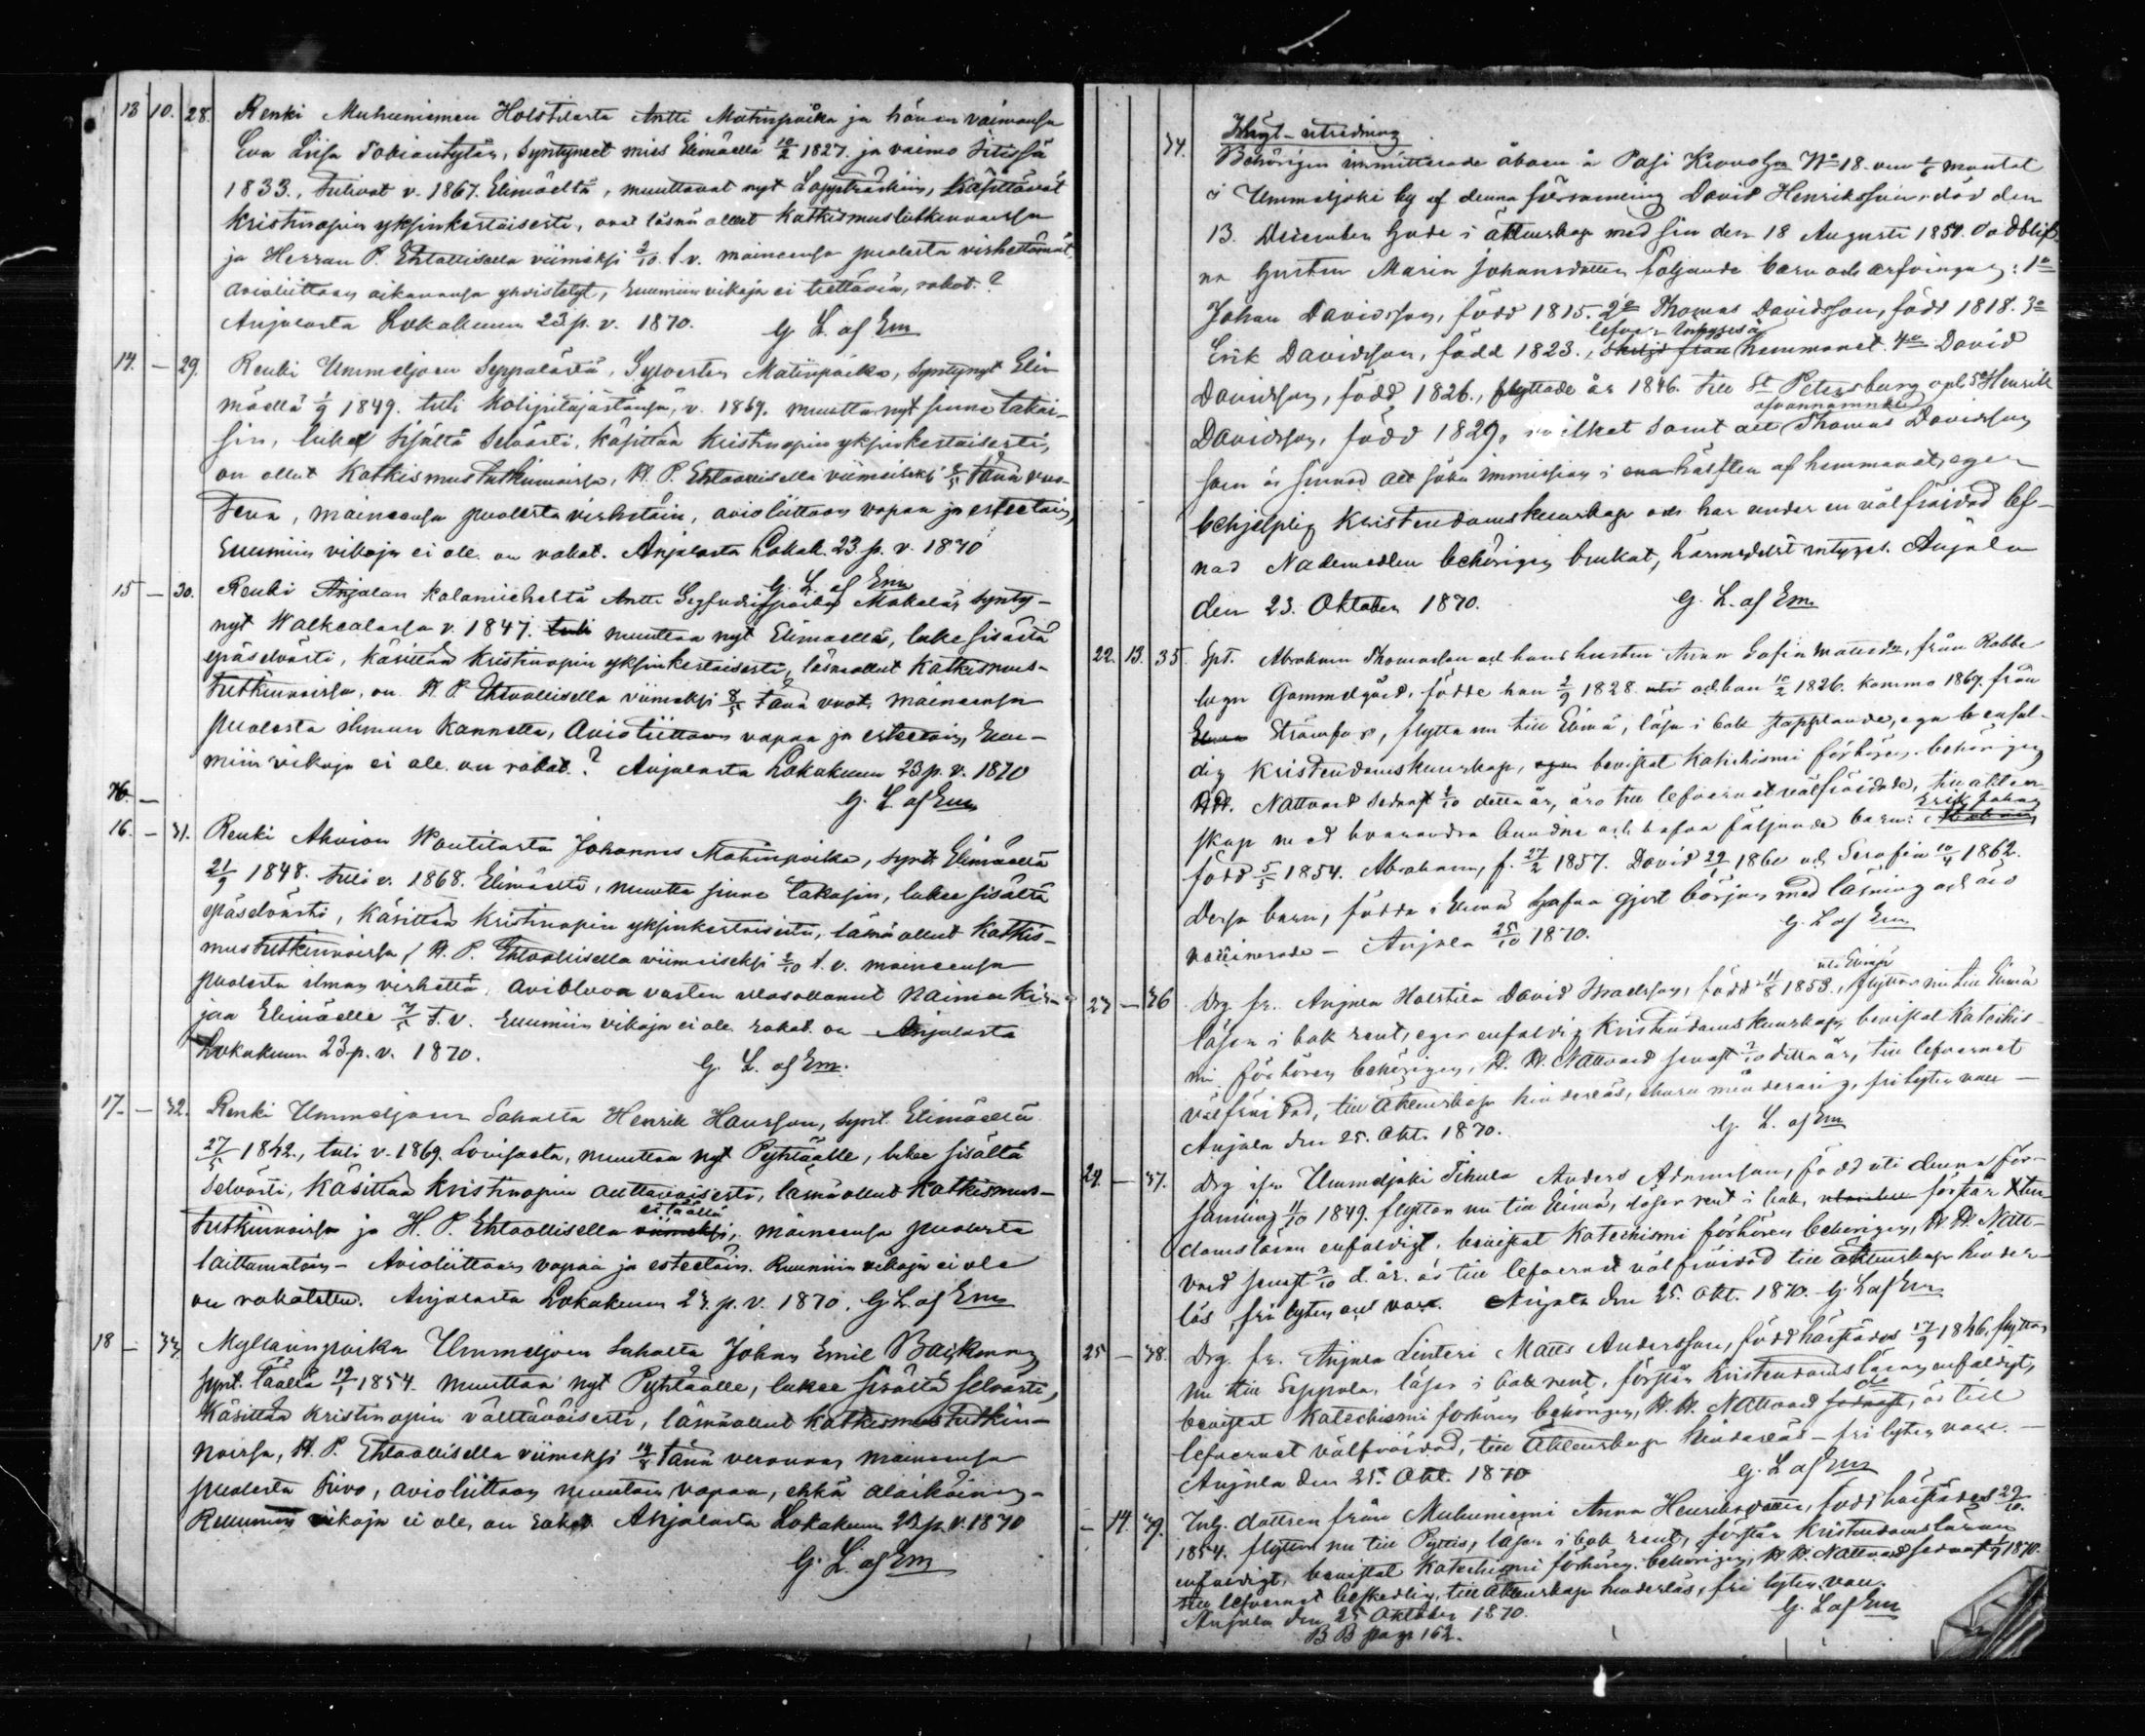 13 10. 28. Renki Muhuniemen Holstilasta Antti Matinpoika ja hänen vaimonsa
Eva Liisa Tobiantytär, syntyneet mies Elimäellä 10/2 1827. ja vaimo Sitissä
1833., tulivat v. 1867. Elimäeltä, muuttavat nyt Lappträskiin, käsittävät
kristinopin yksinkertaisesti, ovat läsnä olleet
ja Herran P. Ehtoollisella viimeksi 2/10 t. v. maineensa puolesta virhettömät,
avioliittoon aikanansa yhdistetyt, Ruumiin vikoja ei tiettäviä, rokot.?
Anjalasta Lokakuun 23 p. v. 1870. G. L. af Em
14. — 29. Renki Ummeljoen Seppälästä, Sylvester Matinpoika, syntynyt Eli-
mäellä 1/9 1849. tuli v. 1869. muuttaa nyt sinne takai-
sin, lukee sisältä selvästi, käsittää kristinopin yksinkertaisesti,
on ollut Katkismustutkinnoissa, H. P. Ehtoollisella viimeiseksi 8/5 tänä vuo-
tena, maineensa puolesta virhetöin, avioliittoon vapaa ja esteetöin,
Ruumiin vikoja ei ole. on rokot. Anjalasta Lokak. 23 p. v. 1870
G. L. af Em
15 — 30. Renki Anjalan Antti Sigfridinpoika synty-
nyt Walkealassa v. 1847. tuli muuttaa nyt Elimäellä, lukee sisältä
epäselvästi, käsittää kristinopin yksinkertaisesti, läsnäollut Katkismus-
tutkinnoissa, on H. P. Ehtoollisella viimeksi 8/5 tänä vuot. maineensa
puolesta ilman kannetta, Avioliittoon vapaa ja esteetöin, Ruu-
miin vikoja ei ole. on rokot.? Anjalasta Lokakuun 23 p. v. 1870
G. L. af Em
16. —
16. — 31. Renki Ahvion Woutilasta Johannes Matinpoika, synt. Elimäellä
21/9 1848. tuli v. 1868. Elimäeltä, muuttaa sinne takasin, lukee sisältä
epäselvästi, käsittää kristinopin yksinkertaisesti, läsnä ollut Katkis-
mustutkinnoissa, H. P. Ehtoollisella viimeiseksi 2/10 t. v. maineensa
puolesta ilman virhettä, aviolivoa varten ulosottanut naima kir-
jan Elimäelle t. v. Ruumiin vikoja ei ole rokot. on Anjalasta
Lokakuun 23 p. v. 1870. G. L. af Em.
17. — 32. Renki Ummeljoen Sahalta Henrik Hansson, synt. Elimäellä
27/5 1842., tuli v. 1869. Lovisasta, muuttaa nyt Pyhtäälle, lukee sisältä
selvästi, käsittää kristinopin auttavaisesti, läsnäollut Katkismus-
tutkinnoissa ja H. P. Ehtoollisella viimeksi, ei täällä maineensa puolesta
laittamatoin – Avioliittoon vapaa ja esteetöin. Ruumiin vikoja ei ole
on rokotettu. Anjalasta Lokakuun 23. p. v. 1870. G. L. af Em
18 — 33. Myllärinpoika Ummeljoen Sahalta Johan Emil Backman,
synt. täällä 19/1 1854. muuttaa nyt Pyhtäälle, lukee sisältä selvästi,
käsittää kristinopin välttäväisesti, läsnäollut Katkismustutkin-
noissa, H. P. Ehtoollisella viimeksi tänä vuonna, maineensa
puolesta siivo, avioliittoon muutoin vapaa, ehkä alaikäinen –
Ruumiin vikoja ei ole, on rokot. Anjalasta Lokakuun 23 p. v. 1870
G. L. af Em
34. utredning
Behörigen immitterade åboen å Pasi Krono No 18. om 1/6 mantal
i Ummeljoki by af denna församling David Henriksson, död den
13. December hade i äktenskap med sin den 18 Augusti 1850. död
na hustru Maria Johansdotter följande barn och arfvingar: 1o
Johan Davidsson, född 1815. 2o Thomas Davidsson, född 1818. 3o
Erik Davidsson, född 1823., skiljd från hemmanet. 4o David
Davidsson, född 1826., flyttade år 1846. till St Petersburg och 5o Henrik
Davidsson, född 1829, hvilket samt att ofvannämnde Thomas Davidsson
som är sinnad att söka immission i ena hälften af hemmanet, eger
behjelplig kristendomskunskap och har under en välfräjdad lef-
nad Nademedlen behörigen brukat, härmedelst intygas. Anjala
den 23. Oktober 1870. G. L. af Em.
22. 13. 35. Spt. Abraham Thomasson och hans hustru Anna Sofia Mattsdr, från Rabbe-
lugn Gammelgård, födde han 2/9 1828. och hon 10/2 1826. komne 1867. från
Strömfors, flytta nu till Elimä, läsa i bok stapplande, ega enfal-
dig kristendomskunskap, bevistat Katechismi förhören behörigen
HH. Nattvard sednast 2/10 detta år, äro till lefvernet välfräjdade, till äkten-
skap med hvarandra bundne och hafva följande barn: Erik Johan
född 5/5 1854. Abraham, f. 27/2 1857. David 29/1 1860 och Serafia 10/4 1862.
Dessa barn, födda i Elimä hafva gjort början med läsning och äro
vaccinerade – Anjala 25/10 1870. G. L. af Em
23 — 36 Drg fr. Anjala Holstila David Israelsson, född uti Elimä 11/8 1853., flyttar nu till Elimä
läser i bok rent, eger enfaldig kristendomskunskap, bevistat Katechis-
mi förhören behörigen, H. H. Nattvard senast 2/10 detta år, till lefvernet
välfräjdad, till äktenskap hinderlös, ehuru minderårig, fri lyten vacc –
Anjala den 25. Okt. 1870. G. L. af Em
24. — 37. Drg ifrn Ummeljoki Tikula Anders Adamsson, född uti denna för-
samling 11/10 1849. flyttar nu till Elimä, läser rent i bok, förstår Xten-
domsläran enfaldigt, bevistat Katechismi förhören behörigen, H. H. Natt-
vard senast 2/10 d. år. är till lefvernet välfräjdad till äktenskap hinder-
lös, fri lyten och vacc. Anjala den 25. Okt. 1870. G. L. af Em
25 — 38. Drg. fr. Anjala Linteri Matts Andersson, född härstädes 17/9 1846, flyttar
nu till Seppola, läser i bok rent, förstår kristendomsläran enfaldigt,
bevistat Katechismi förhören behörigen, H. H. Nattvard sednast, är till
lefvernet välfräjdad, till äktenskap hinderlös – fri lyten vacc. –
Anjala den 25. Okt. 1870 G. L. af Em
– 14. 39. Inh. dottren från Muhuniemi Anna Henriksdotter, född härstädes 29/10.
1854. flyttar nu till Pyttis, läser i bok rent, förstår kristendomsläran
enfaldigt, bevistat Katechismi förhören behörigen, H. H. Nattvard sednast 1870.
till lefvernet beskedlig, till äktenskap hinderlös, fri lyten, vacc.
Anjala den 25 Oktober 1870. G. L. af Em
B B pag. 162.